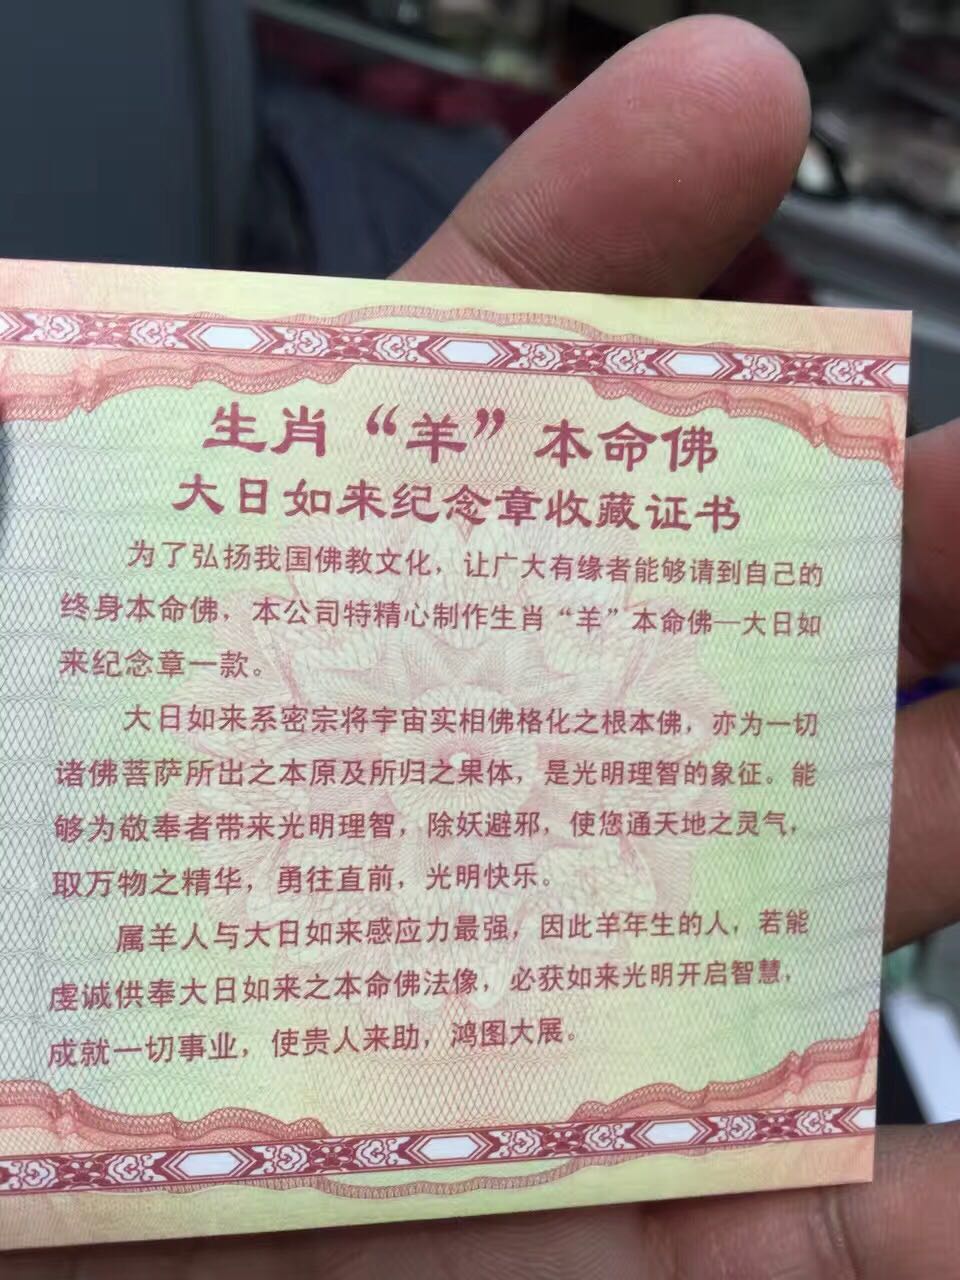 生肖“羊”本命佛
大日如来纪念章收藏证书
为了弘扬我国佛教文化，让广大有缘者能够请到自己的
终身本命佛，本公司特精心制作生肖“羊”本命佛—大日如
来纪念章一款。
大日如来系密宗将宇宙实相佛格化之根本佛，亦为一切
诸佛菩萨所出之本原及所归之果体，是光明理智的象征。能
够为敬奉者带来光明理智，除妖避邪，使您通天地之灵气，
取万物之精华，勇往直前，光明快乐。
属羊人与大日如来感应力最强，因此羊年生的人，若能
虔诚供奉大日如来之本命佛法像，必获如来光明开启智慧，
成就一切事业，使贵人来助，鸿图大展。